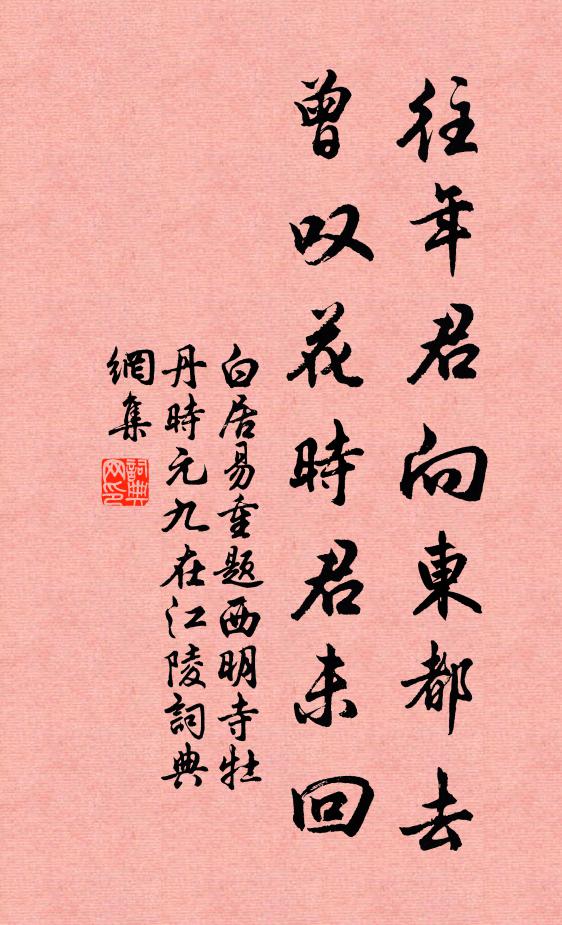 往年君向東都去
曾叹花時君未回
白居易重题西明寺牡
丹時元九在江陵詞典
網集
詞典網印